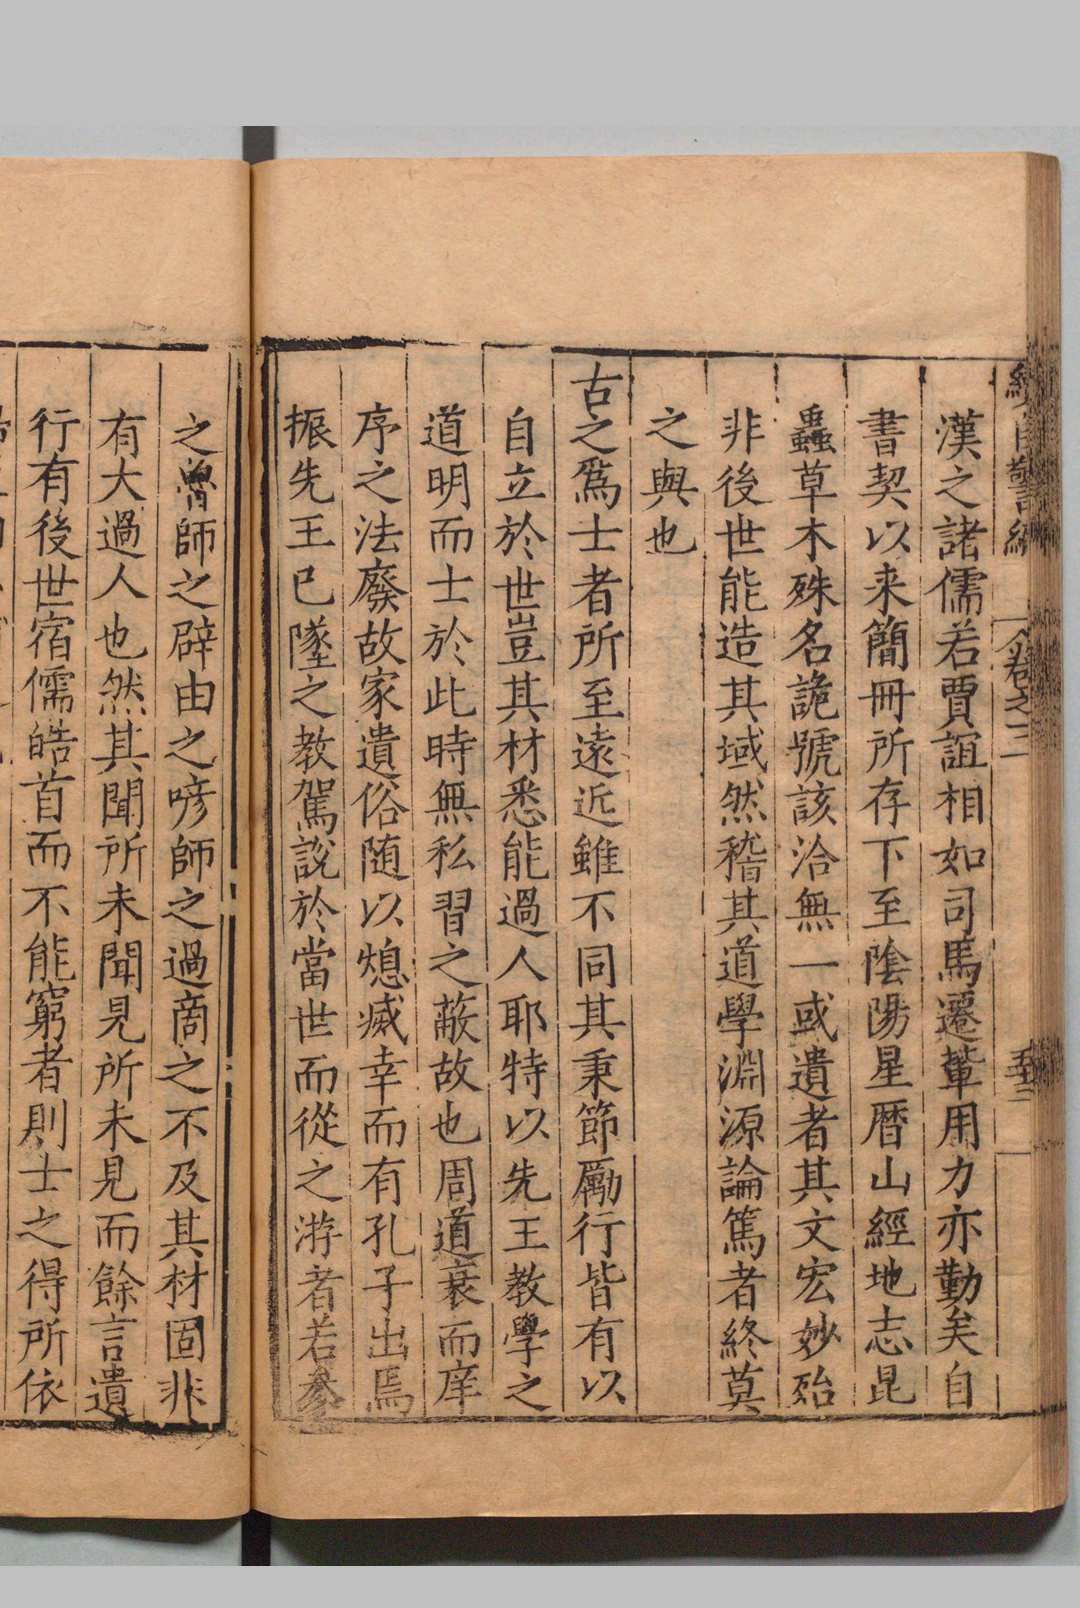 卷之三
五十三
漢之諸儒若賈誼相如司馬遷輩用力亦勤矣自
書契以来簡冊所存下至陰陽星曆山經地志昆
蟲草木殊名詭號該洽無一或遺者其文宏妙殆
非後世能造其域然稽其道學淵源論篤者終莫
之與也
古之爲士者所至遠近雖不同其秉節勵行皆有以
自立於世豈其材悉能過人耶特以先王教學之
道明而士於此時無私習之蔽故也周道衰而庠
序之法廢故家遺俗随以熄滅幸而有孔子出焉
振先王已墜之教駕說於當世而從之游者若參
之魯師之辟由之喭師之過商之不及其材固非
有大過人也然其聞所未聞見所未見而餘言遺
行有後世宿儒皓首而不能窮者則士之得所依